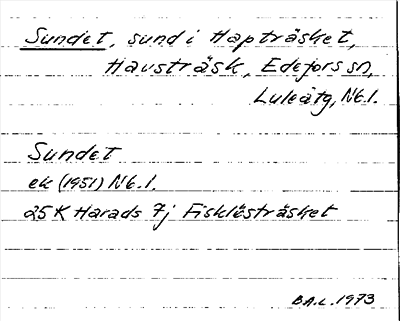 Sundet, sund i Hapträsket,
Hausträsk, Edefors sn,
Luleåtg, Nb.l.
Sundet
ek (1951) Nb.l.
25K Harads 7j Fisklösträsket
B.A.L. 1973